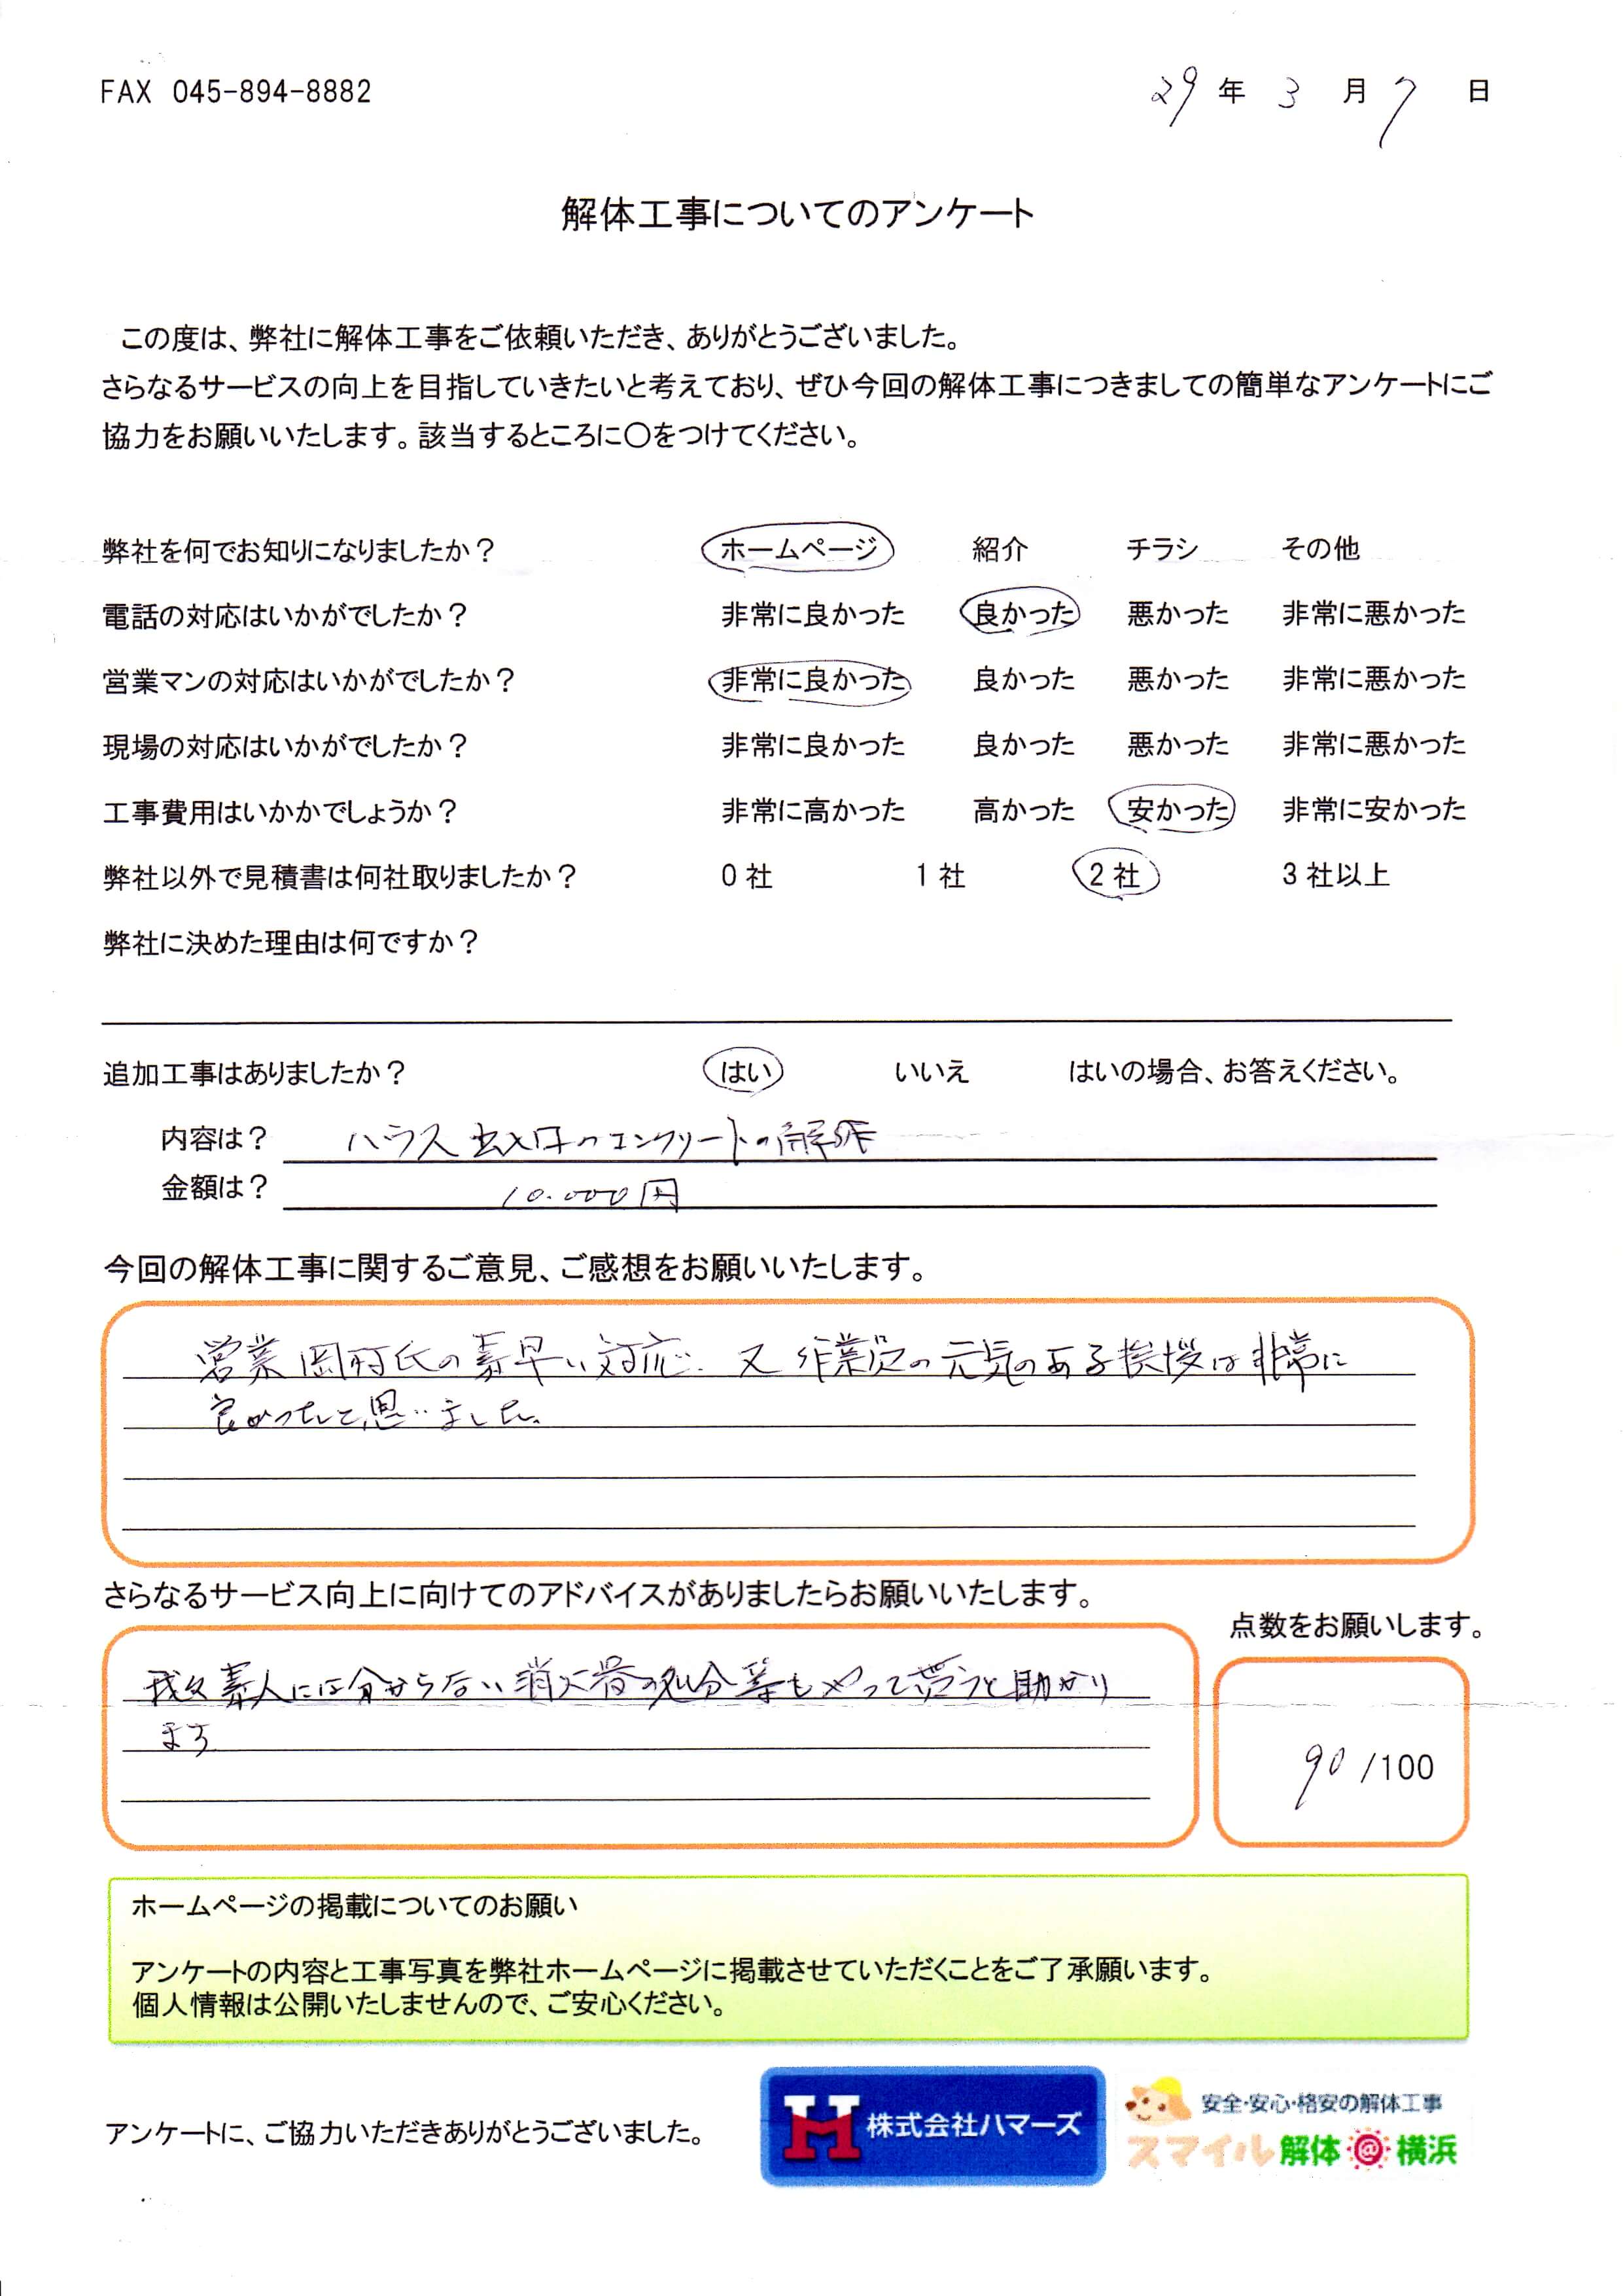 FAX 045-894-8882
29年 3月 7日
解体工事についてのアンケート
この度は、弊社に解体工事をご依頼いただき、ありがとうございました。
さらなるサービスの向上を目指していきたいと考えており、ぜひ今回の解体工事につきましての簡単なアンケートにご
協力をお願いいたします。該当するところに〇をつけてください。
弊社を何でお知りになりましたか？ ホームページ 紹介 チラシ その他
電話の対応はいかがでしたか？ 非常に良かった 良かった 悪かった 非常に悪かった
営業マンの対応はいかがでしたか？ 非常に良かった 良かった 悪かった 非常に悪かった
現場の対応はいかがでしたか？ 非常に良かった 良かった 悪かった 非常に悪かった
工事費用はいかかでしょうか？ 非常に高かった 高かった 安かった 非常に安かった
弊社以外で見積書は何社取りましたか？ 0 社 1 社 2 社 3 社以上
弊社に決めた理由は何ですか？
追加工事はありましたか？ はい いいえ はいの場合、お答えください。
内容は？ ハウス のコンクリートの解体
金額は？ 10.000円
今回の解体工事に関するご意見、ご感想をお願いいたします。
営業岡村氏の素早い対応 又 作業員の元気のある挨拶は非常に
良かったと思いました。
さらなるサービス向上に向けてのアドバイスがありましたらお願いいたします。
点数をお願いします。
我々素人には分からない消火器の処分等もやって貰うと助かり
ます
90 /100
ホームページの掲載についてのお願い
アンケートの内容と工事写真を弊社ホームページに掲載させていただくことをご了承願います。
個人情報は公開いたしませんので、ご安心ください。
アンケートに、ご協力いただきありがとうございました。
株式会社ハマーズ
安全・安心・格安の解体工事
スマイル解体@横浜